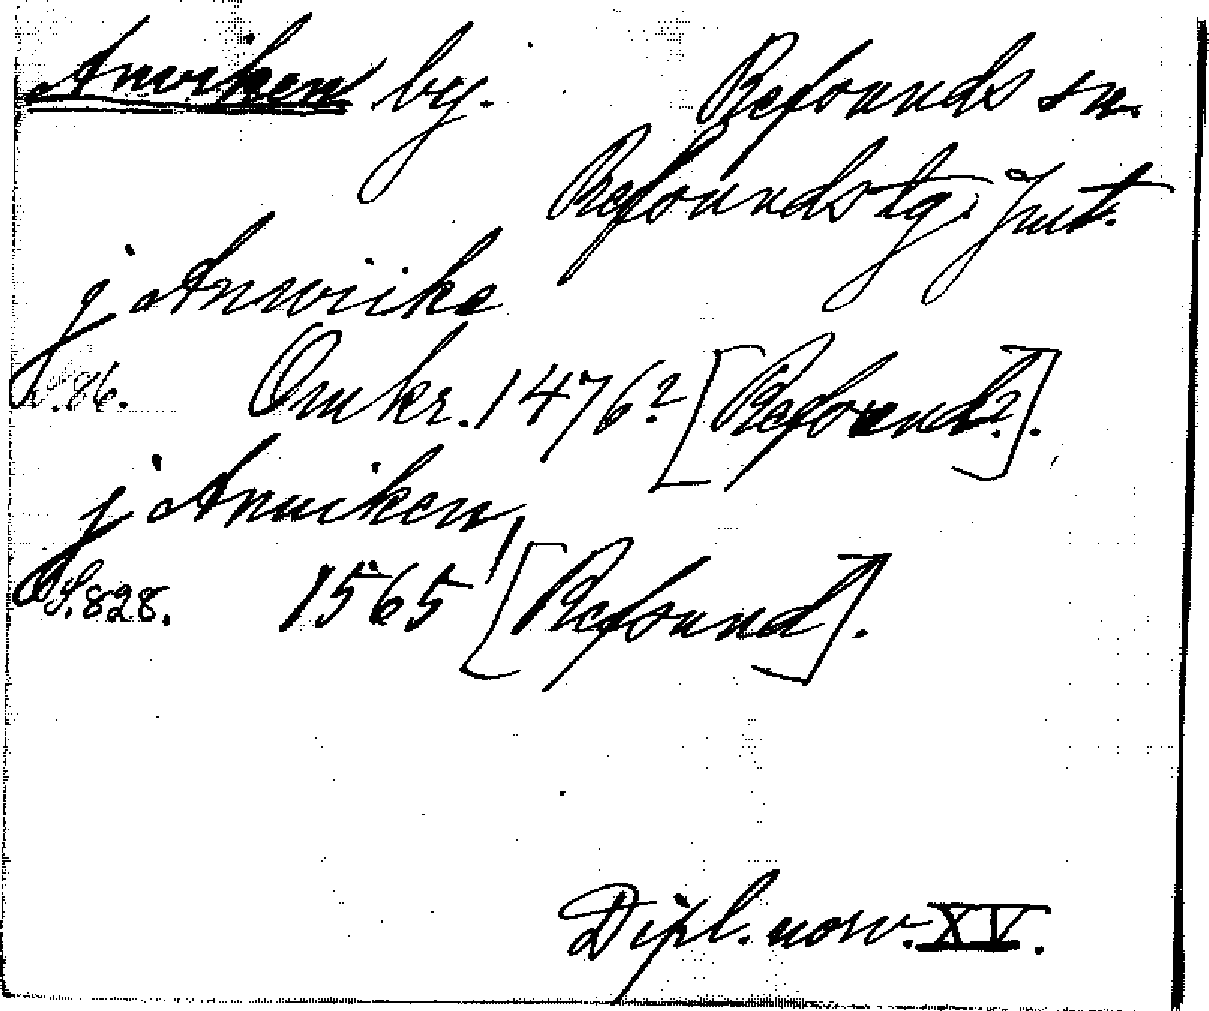 Anviken by. Refsunds sn.
Refsunds tg. Jmt.
j Anwiike
S. 86. Omkr. 1476? [Refsund?].
j Anuiken,
S. 828. 1565 [Refsund].
Dipl. norv. XV.